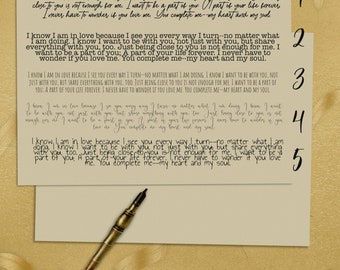 close to you is not enough for me. I want to be a part of you; A part of your life forever.
I never have to wonder if you love me. You complete me—my heart and my soul.
1
I know I am in love because I see you every way I turn—no matter what
I am doing. I know I want to be with you, not just with you, but share
everything with you, too. Just being close to you is not enough for me. I
want to be a part of you; A part of your life forever. I never have to
wonder if you love me. You complete me—my heart and my soul.
2
I KNOW I AM IN LOVE BECAUSE I SEE YOU EVERY WAY I TURN—NO MATTER WHAT I AM DOING. I KNOW I WANT TO BE WITH YOU, NOT
JUST WITH YOU, BUT SHARE EVERYTHING WITH YOU, TOO. JUST BEING CLOSE TO YOU IS NOT ENOUGH FOR ME. I WANT TO BE A PART OF
YOU; A PART OF YOUR LIFE FOREVER. I NEVER HAVE TO WONDER IF YOU LOVE ME. YOU COMPLETE ME—MY HEART AND MY SOUL.
3
I know I am in love because I see you every way I turn—no matter what I am doing. I know I want
to be with you, not just with you, but share everything with you, too. Just being close to you is not
enough for me. I want to be a part of you; A part of your life forever. I never have to wonder if you
love me. You complete me—my heart and my soul.
4
I know I am in love because I see you every way I turn—no matter what I am
doing. I know I want to be with you, not just with you, but share everything
with you, too. Just being close to you is not enough for me. I want to be a
part of you; A part of your life forever. I never have to wonder if you love
me. You complete me—my heart and my soul.
5